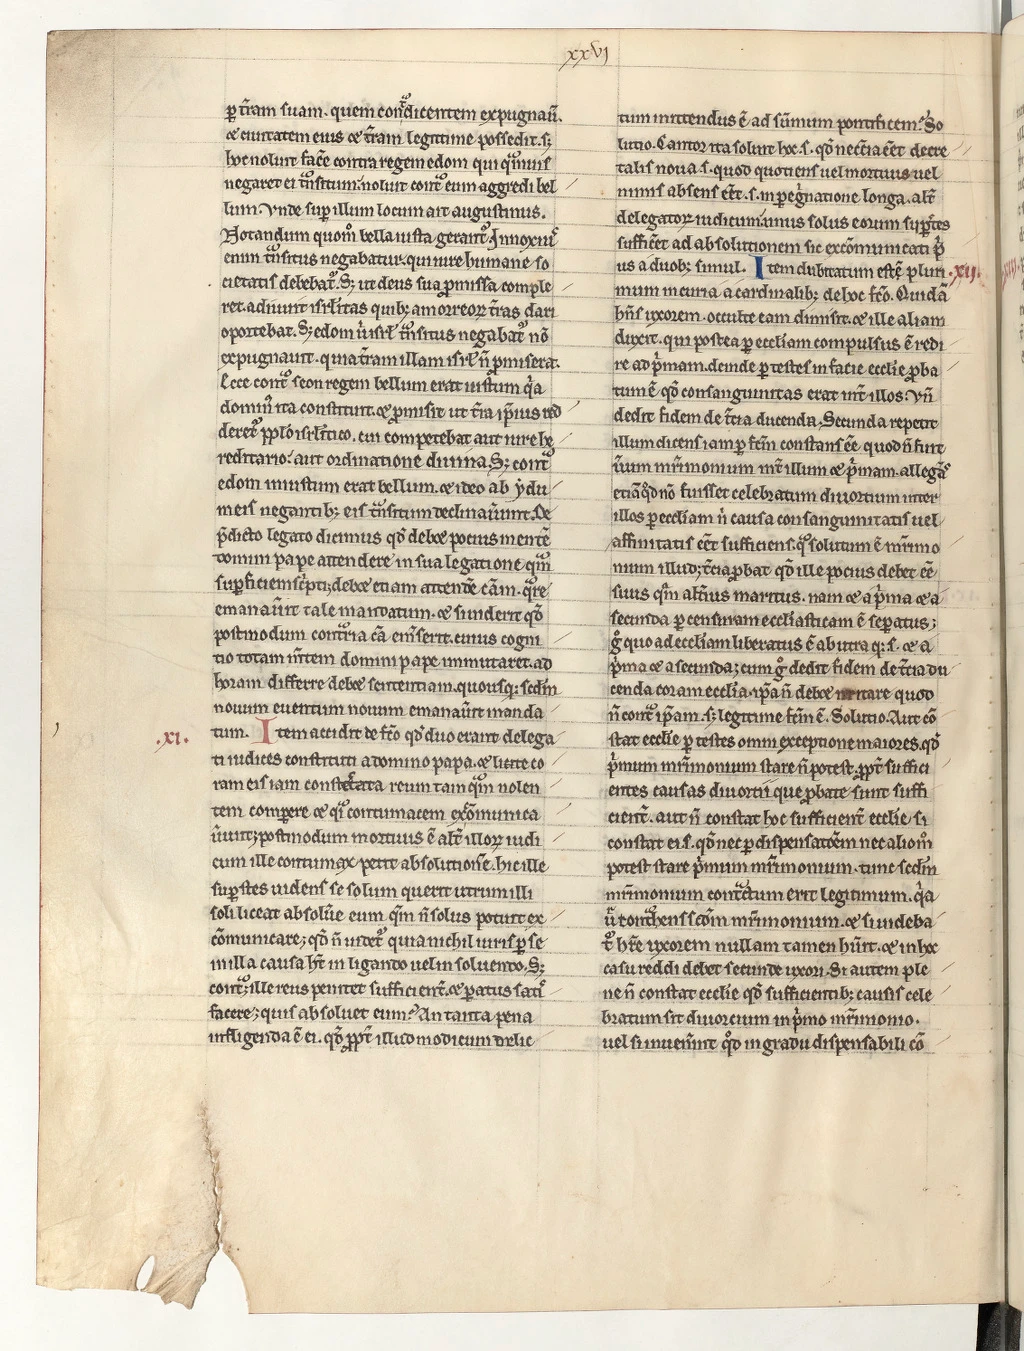 xxvi
ꝑ t̄ram suam. quem cont̾dicentem expugnaū.
⁊ ciuitatem eius ⁊ t̄ram legitime possedit. sꝫ
hoc noluit fac̄e contra regem edom qui q̾muis
negaret ei t̾nsitum. noluit cont̾ eum aggredi bel
lum. Vnde suꝑ illum locum ait augustinus.
Notandum quom̊ bella iusta gerant᷑. Innoxiꝰ
enim t̾nsitus negabatur. qui iure humane so
cietatis debebat᷑. Sꝫ ut deus sua ꝓmissa comple
ret. adiuuit isrl̄itas quibꝫ amorreoꝝ t̄ras dari
oportebat. Sꝫ edom ū isrl̄ t̾nsitus negabat᷑ nō
expugnauit. quia t̄ram illam isrl̄ n̄ ꝓmiserat.
Ecce cont̾ seon regem bellum erat iustum q̇a
domin̄ ita constituit. ⁊ ꝓmisit ut t̄ra ip̄ius red
deret᷑ pplo isrl̄itico. cui competebat aut iure he
reditario. aut ordinatione diuina. Sꝫ cont̾
edom iniustum erat bellum. ⁊ ideo ab ydu
meis negantibꝫ eis t̾nsitum declinauer̄unt. De
p̄dicto legato dicimus qd̄ debet pocius mentē
domini pape attendere in sua legatione q̾m
suꝑficiem sc̄pti; debet etiam attende͞ cām. q̾re
emanau͛it tale mandatum. ⁊ si uiderit qd̄
postmodum cont̾ria cā em͛serit. cuius cogni
tio totam m̄tem domini pape immutaret. ad
horam differre debet sententiam. quousqꝫ scd̄m
nouum euentum nouum emanau͛it manda
.xi. tum. Item accidit de fc̄o qd̄ duo erant delega
ti iudices constituti a domino papa. ⁊ lite co
ram eis iam contestata reum tamq̾m nolen
tem compere ⁊ q̇i contumacem excōmunica
ūunt; postmodum mortuus ē alt͛ illoꝝ iudi
cum ille contumax petit absolutionē. hic ille
suꝑstes uidens se solum querit utrum illi
soli liceat absolu͛e eum. q̄m n̄ solus potuit ex
cōmunicare; qd̄ n̄ uidet᷑ quia nichil iuris ꝑ se
in illa causa ht̄ in ligando uel in soluendo. Sꝫ
cont̾; ille reus penitet sufficient͛. ⁊ ꝑatus satiˀ
facere; quis absoluet eum? An tanta pena
infligenda ē ei. qd̄ ꝓpt͛ illud modicum delic
tum mittendus ē ad sūmum pontificem? So
lutio. Cantor ita soluit hoc. s. qd̄ nec̄cia eēt decre
talis noua. s. quod quotiens uel mortuus uel
nimis absens eēt. s. in peg̾natione longa. alt͛
delegatoꝝ iudicum unus solus eorum suꝑstes
suffic͛et ad absolutionem sic excōmunicati ṗ
us a duobꝫ simul. Item dubitatum est ē pluri .xij.
mum in curia a cardinalibꝫ de hoc fc̄o. Quidā
hn̄s uxorem. occulte eam dimisit. ⁊ ille aliam
duxit. qui postea ꝑ eccl̄iam compulsus ē redi
re ad ṗmam. deinde ꝑ testes in facie eccl̄ie ꝓba
tum ē qd̄ consanguinitas erat int͛ illos. Vn̄
dedit fidem de t̄cia ducenda. Secunda repetit
illum dicens iam ꝑ fc̄m constans eē quod n̄ fuit
ūum mr̄imonium int͛ illum ⁊ ṗmam. allegat̾
etiā qd̄ nō fuisset celebratum diuortium inter
illos ꝑ eccl̄iam n̄ causa consanguinitatis uel
affinitatis eēt sufficiens. q̊ solutum ē mr̄imo
nium illud; t̄cia ꝓbat qd̄ ille pocius debet eē
suus q̄m alt͛ius maritus. nam ⁊ a ṗma ⁊ a
secunda ꝑ censuram eccl̄iasticam ē seꝑatus;
g̊ quo ad eccl̄iam liberatus ē ab utraqꝫ. s. ⁊ a
ṗma ⁊ a secunda; cum g̊ dedit fidem de t̄cia du
cenda coram eccl̄ia. ip̄a n̄ debet uitare quod
n̄ cont̾ ip̄am. sꝫ legitime fc̄m ē. Solutio. Aut cō
stat eccl̄ie ꝑ testes omni exceptione maiores. qd̄
ṗmum mr̄imonium stare n̄ potest. ꝓpt͛ suffici
entes causas diuortii que ꝓbate sunt suffi
cient͛. aut n̄ constat hoc sufficient͛ eccl̄ie. si
constat ei. s. qd̄ nec ꝑ dispensatōem nec aliom̊
potest stare ṗmum mr̄imonium. tunc scd̄m
mr̄imonium cont̾ctum erit legitimum. q̇a
casu reddi debet secunde uxori. Si autem ple
ne n̄ constat eccl̄ie qd̄ sufficientibꝫ causis cele
bratum sit diuorcium in ṗmo mr̄imonio.
uel si inuen͛int qd̄ in gradu dispensabili cō